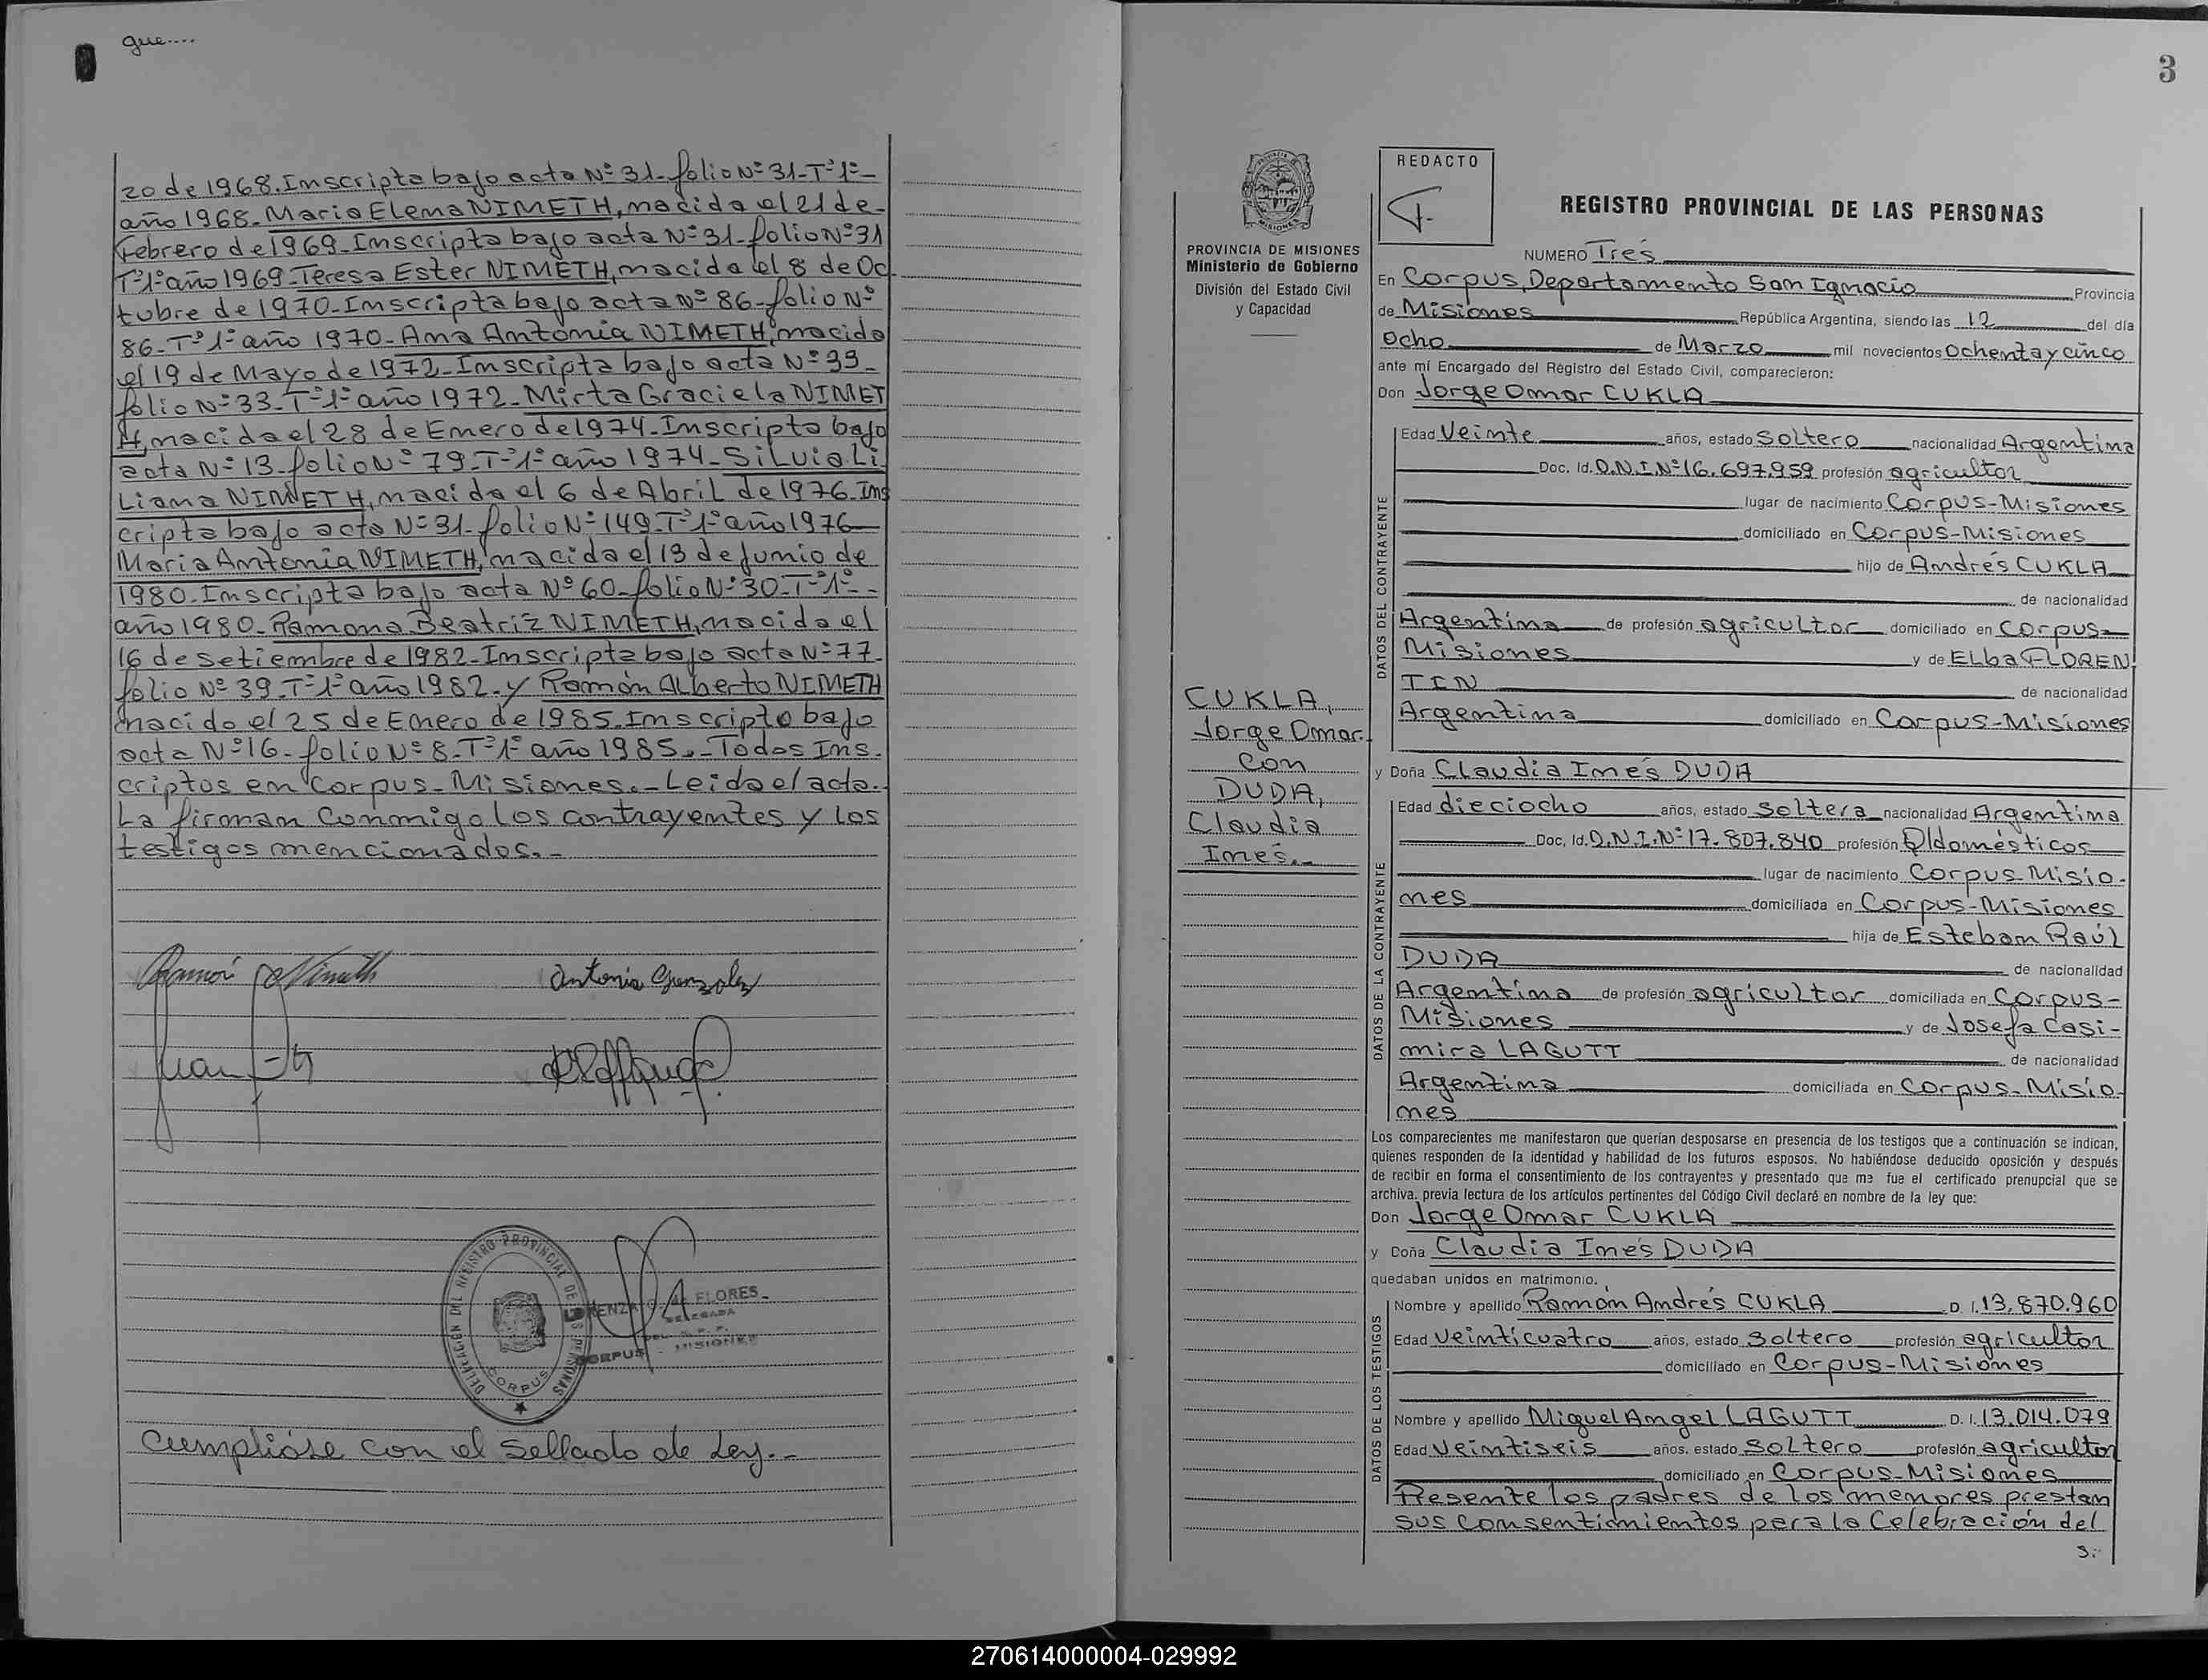 que....
zo de 1968. Inscripta bajo acta Nº 31- folio Nº 31- Tº 1º-
año 1968- Maria Elena NIMETH, nacida el 21 de-
Febrero de 1969- Inscripta bajo acta Nº 31- folio Nº 31
Tº 1º año 1969- Teresa Ester NIMETH, nacida el 8 de Oc
tubre de 1970- Inscripta bajo acta Nº 86- folio Nº
86- Tº 1º año 1970- Ana Antonia NIMETH, nacida
el 19 de Mayo de 1972- Inscripta bajo acta Nº 33-
folio Nº 33- Tº 1º año 1972- Mirta Graciela NIMET
H, nacida el 28 de Enero de 1974- Inscripta bajo
acta Nº 13- folio Nº 79- Tº 1º año 1974- Silvia Li
Liana NIMETH, nacida el 6 de Abril de 1976- Ins
cripta bajo acta Nº 31- folio Nº 149- Tº 1º año 1976-
Maria Antonia NIMETH, nacida el 13 de Junio de
1980- Inscripta bajo acta Nº 60- folio Nº 30- Tº 1º-
año 1980- Ramona Beatriz NIMETH, nacida el
16 de Setiembre de 1982- Inscripta bajo acta Nº 77-
folio Nº 39- Tº 1º año 1982- y Ramón Alberto NIMETH
nacido el 25 de Enero de 1985. Inscripto bajo
acta Nº 16- folio Nº 8- Tº 1º año 1985.- Todos Ins-
criptos en Corpus- Misiones.- Leida el acta.
La firman conmigo los contrayentes y los
testigos mencionados.-
Ramón Nimeth
Antonia Gonzalez
Juan
DELEGACION DEL REGISTRO PROVINCIAL DE LAS PERSONAS
CORPUS
FLORES
DELEGADA
CORPUS - MISIONES
Cumpliose con el Sellado de Ley.-
3
PROVINCIA DE MISIONES
Ministerio de Gobierno
División del Estado Civil
y Capacidad
REDACTO
REGISTRO PROVINCIAL DE LAS PERSONAS
NUMERO Tres
En Corpus, Departamento San Ignacio Provincia
de Misiones República Argentina, siendo las 12 del día
Ocho de Marzo mil novecientos Ochenta y cinco
ante mí Encargado del Registro del Estado Civil, comparecieron:
Don Jorge Omar CUKLA
DATOS DEL CONTRAYENTE
Edad Veinte años, estado Soltero nacionalidad Argentina
Doc. Id. D.N.I.Nº 16.697.959 profesión agricultor
lugar de nacimiento Corpus-Misiones
domiciliado en Corpus-Misiones
hijo de Andrés CUKLA
de nacionalidad
Argentina de profesión agricultor domiciliado en Corpus-
Misiones y de Elba FLOREN
TIN de nacionalidad
Argentina domiciliado en Corpus-Misiones
CUKLA,
Jorge Omar.
Con
DUDA,
Claudia
Inés.-
y Doña Claudia Inés DUDA
DATOS DE LA CONTRAYENTE
Edad dieciocho años, estado Soltera nacionalidad Argentina
Doc. Id. D.N.I.Nº 17.807.840 profesión Q/domésticos
lugar de nacimiento Corpus-Misio-
nes domiciliada en Corpus-Misiones
hija de Esteban Raúl
DUDA de nacionalidad
Argentina de profesión agricultor domiciliada en Corpus-
Misiones y de Josefa Casi-
mira LAGUTT de nacionalidad
Argentina domiciliada en Corpus-Misio-
nes
Los comparecientes me manifestaron que querían desposarse en presencia de los testigos que a continuación se indican,
quienes responden de la identidad y habilidad de los futuros esposos. No habiéndose deducido oposición y después
de recibir en forma el consentimiento de los contrayentes y presentado que me fue el certificado prenupcial que se
archiva. previa lectura de los artículos pertinentes del Código Civil declaré en nombre de la ley que:
Don Jorge Omar CUKLA
y Doña Claudia Inés DUDA
quedaban unidos en matrimonio.
DATOS DE LOS TESTIGOS
Nombre y apellido Ramón Andrés CUKLA D. I. 13.870.960
Edad Veinticuatro años, estado Soltero profesión agricultor
domiciliado en Corpus-Misiones
Nombre y apellido Miguel Angel LAGUTT D. I. 13.014.079
Edad Veintiseis años. estado Soltero profesión agricultor
domiciliado en Corpus-Misiones
Presente los padres de los menores prestan
sus consentimientos para la Celebración del
270614000004-029992